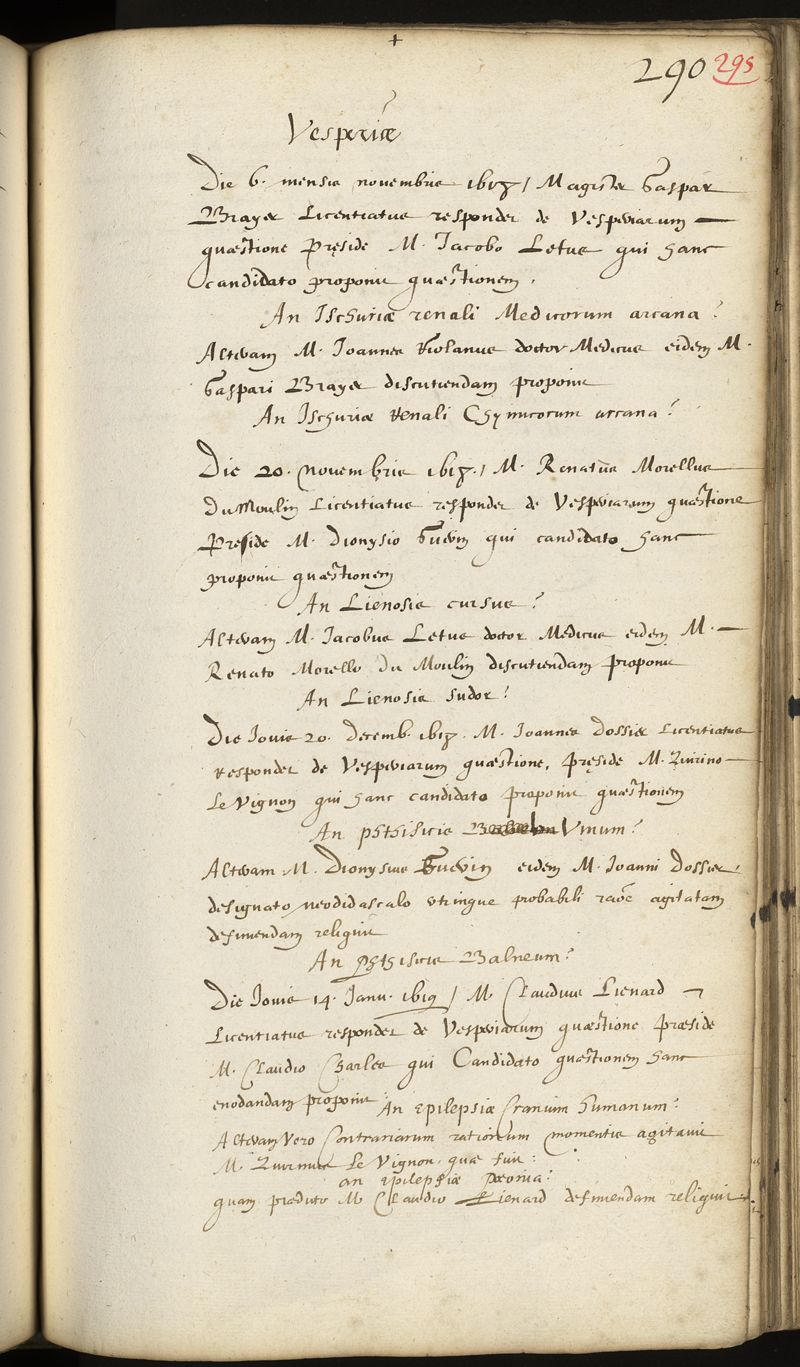 290 295
Vesperiæ
Die 6. mensis novembris 1618 / Magister Gaspar
Brayer Licentiatus respondet de Vesperiarum
quæstione Præside M. Iacobo Letus qui hanc
candidato proponit quæstionem.
An Ischuriæ renali Medicorum arcana?
Alteram M. Ioannes Riolanus doctor Medicus eidem M.
Gaspari Brayer discutiendam proponit
An Ischuriæ Renali Chymicorum arcana?
Die 20. Novembris 1618. / M. Renatus Morellus
Du Moulin Licentiatus respondet de Vesperiarum quæstione
Preside M. Dionysio Guerin qui candidato hanc
proponit quæstionem
An Lienosis cursus?
Alteram M. Iacobus Letus doctor Medicus eidem M.
Renato Morello Du Moulin discutiendam proponit
An Lienosis sudor?
Die Iovis 20. decemb. 1618. M. Ioannes Dossier Licentiatus
Respondet de Vesperiarum quæstione, præside M. Quirino
Le Vignon qui hanc candidato proponit quæstionem
An phthisicis Vinum?
Alteram M. Dionysius Guerin eidem M. Ioanni Dossier
designato neodidascalo utrinque probabili raõe agitatam
definiendam reliquit
An Phthisicis Balneum?
Die Iovis 14. Janu. 1619 / M. Claudius Lienard
Licentiatus respondet de Vesperiarum quæstione Præside
M. Claudio Charles qui Candidato quæstionem hanc
enodandam proponit An Epilepsiæ Cranium humanum?
Alteram Vero Contrariarum rationum momentis agitavit
M. Quirinus Le Vignon. quæ fuit:
an Epilepsiæ pæonia?
quam prædicto M. Claudio Lienard definiendam reliquit